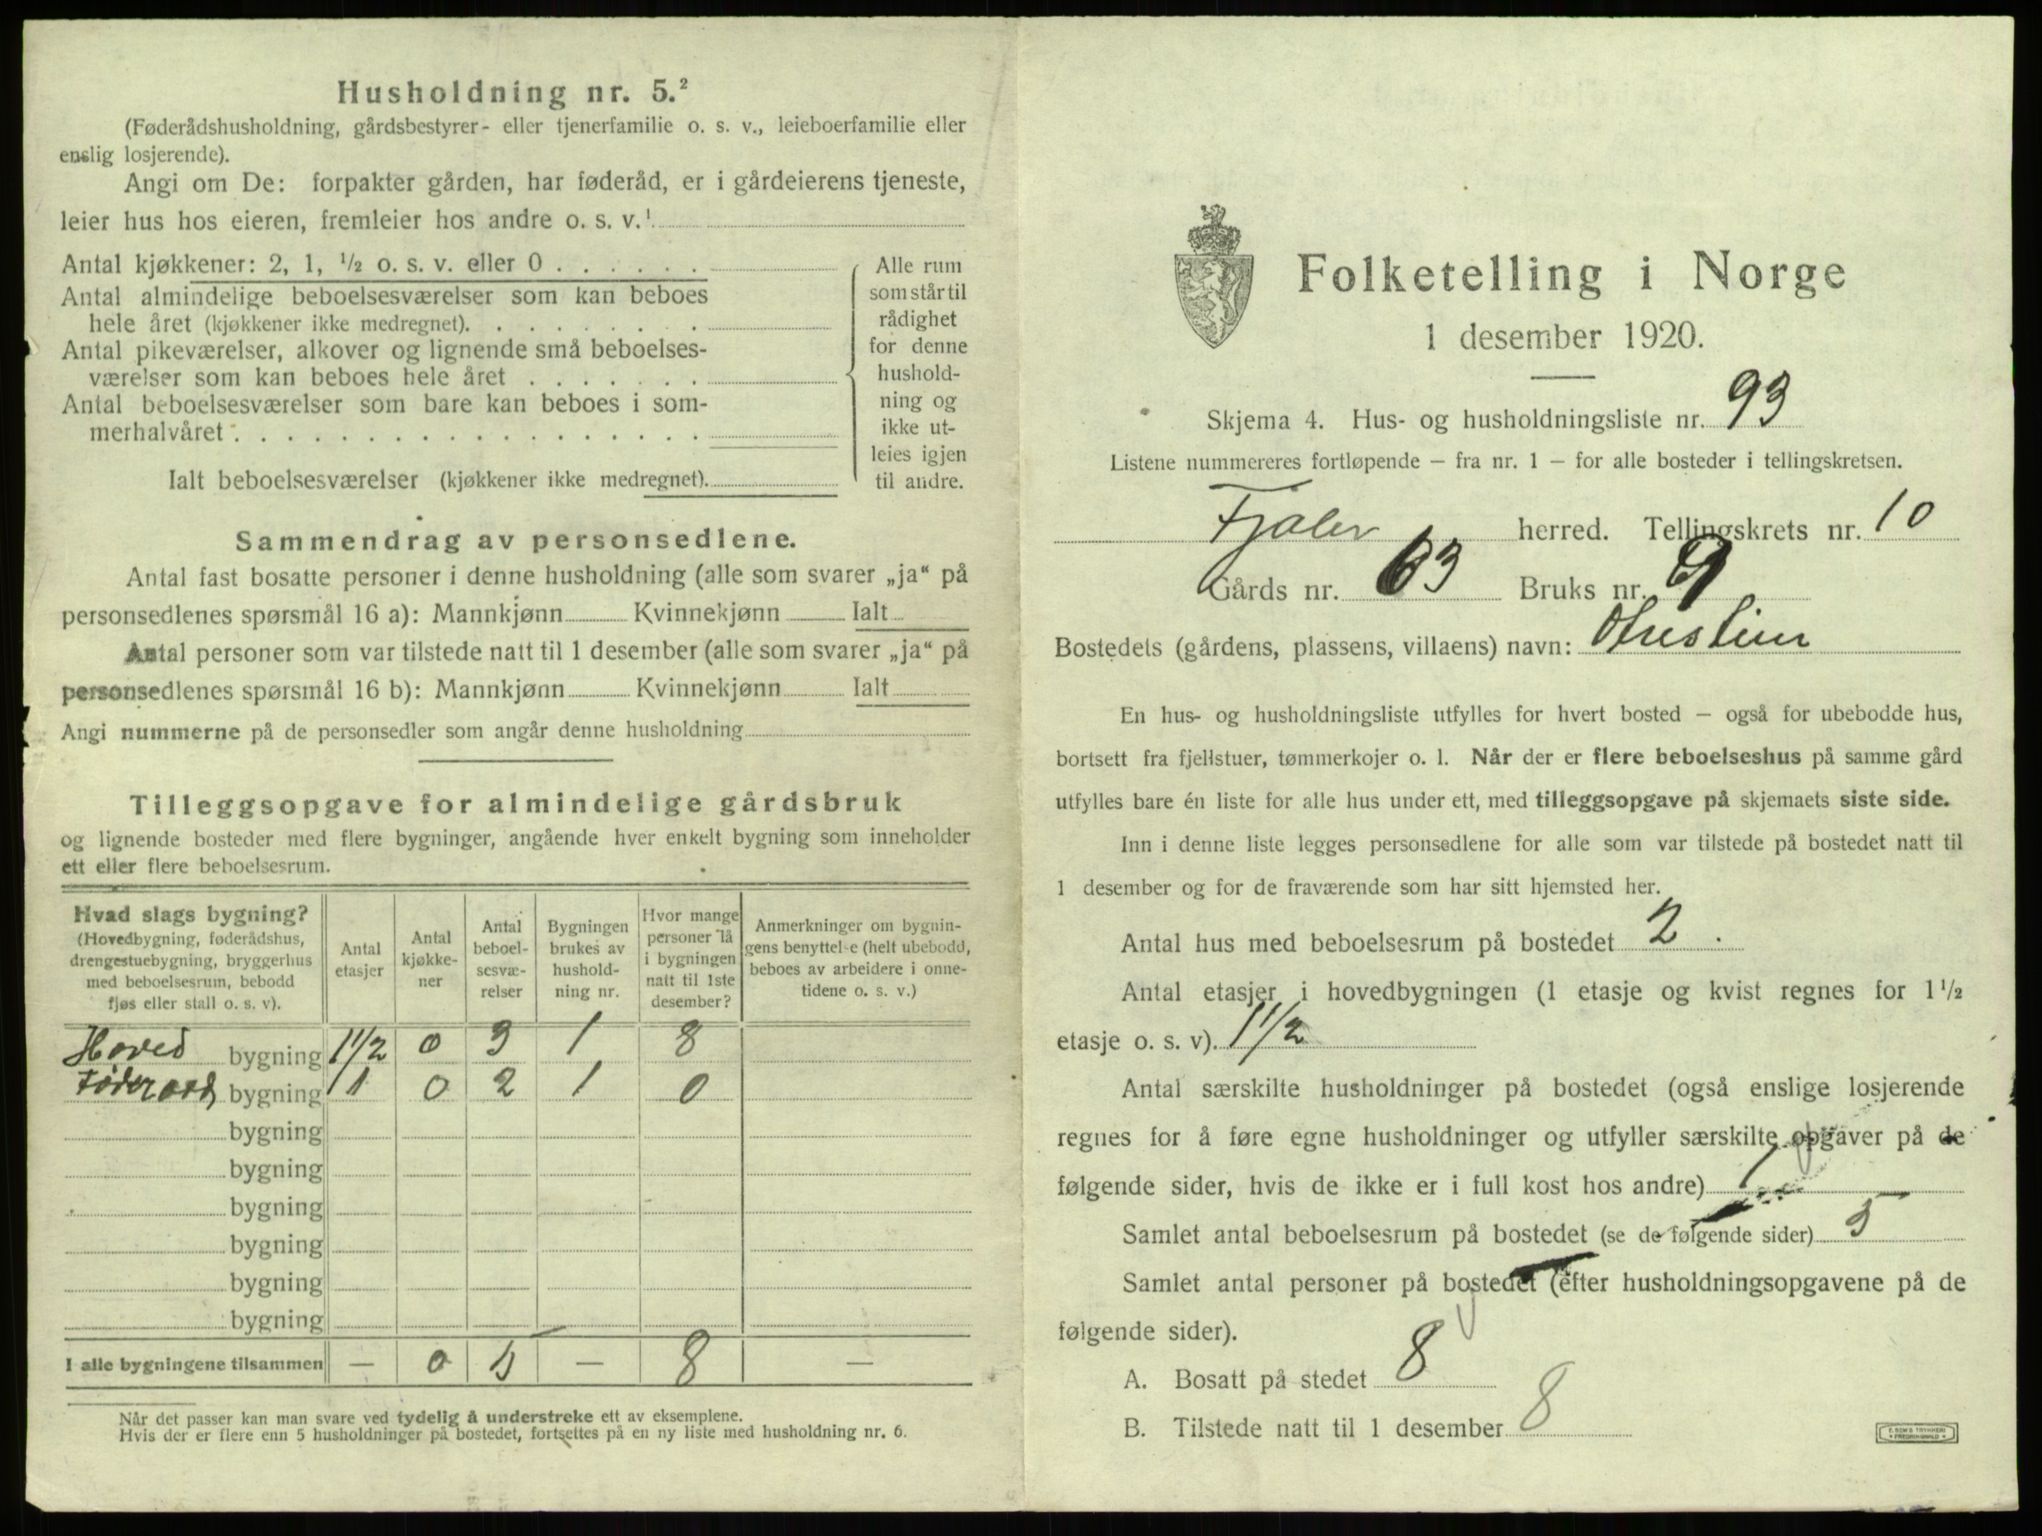 Husholdning nr. 5.²
(Føderådshusholdning, gårdsbestyrer- eller tjenerfamilie o. s. v., leieboerfamilie eller
enslig losjerende).
Angi om De: forpakter gården, har føderåd, er i gårdeierens tjeneste,
leier hus hos eieren, fremleier hos andre o. s. v.¹
Antal kjøkkener: 2, 1, ½ o. s. v. eller 0 . . . . . .
Antal almindelige beboelsesværelser som kan beboes
hele året (kjøkkener ikke medregnet). . . . . . . . .
Antal pikeværelser, alkover og lignende små beboelses-
værelser som kan beboes hele året . . . . . . .
Antal beboelsesværelser som bare kan beboes i som-
merhalvåret . . . . . . . . . . . . . . . . . .
Ialt beboelsesværelser (kjøkkener ikke medregnet).
Alle rum
som står til
rådighet
for denne
hushold-
ning og
ikke ut-
leies igjen
til andre.
Sammendrag av personsedlene.
Antal fast bosatte personer i denne husholdning (alle som svarer „ja“ på
personsedlenes spørsmål 16 a): Mannkjønn Kvinnekjønn Ialt
Antal personer som var tilstede natt til 1 desember (alle som svarer „ja“ på
personsedlenes spørsmål 16 b): Mannkjønn Kvinnekjønn Ialt
Angi nummerne på de personsedler som angår denne husholdning
Tilleggsopgave for almindelige gårdsbruk
og lignende bosteder med flere bygninger, angående hver enkelt bygning som inneholder
ett eller flere beboelsesrum.
Hvad slags bygning?
(Hovedbygning, føderådshus,
drengestuebygning, bryggerhus
med beboelsesrum, bebodd
fjøs eller stall o. s. v).
Antal
etasjer
Antal
kjøkke-
ner
Antal
beboel-
sesvæ-
relser
Bygningen
brukes av
hushold-
ning nr.
Hvor mange
personer lå
i bygningen
natt til 1ste
desember?
Anmerkninger om bygnin-
gens benyttelse (helt ubebodd,
beboes av arbeidere i onne-
tidene o. s. v.)
Hoved bygning 1½ 0 3 1 8
Føderaads bygning 1 0 2 1 0
bygning
bygning
bygning
bygning
bygning
bygning
I alle bygningene tilsammen — 0 5 — 8 —
Når det passer kan man svare ved tydelig å understreke ett av eksemplene.
Hvis der er flere enn 5 husholdninger på bostedet, fortsettes på en ny liste med husholdning nr. 6.
Folketelling i Norge
1 desember 1920.
Skjema 4. Hus- og husholdningsliste nr. 93
Listene nummereres fortløpende – fra nr. 1 – for alle bosteder i tellingskretsen.
Fjaler herred. Tellingskrets nr. 10
Gårds nr. 63 Bruks nr. 9
Bostedets (gårdens, plassens, villaens) navn:
En hus- og husholdningsliste utfylles for hvert bosted – også for ubebodde hus,
bortsett fra fjellstuer, tømmerkojer o. l. Når der er flere beboelseshus på samme gård
utfylles bare én liste for alle hus under ett, med tilleggsopgave på skjemaets siste side.
Inn i denne liste legges personsedlene for alle som var tilstede på bostedet natt til
1 desember og for de fraværende som har sitt hjemsted her.
Antal hus med beboelsesrum på bostedet 2.
Antal etasjer i hovedbygningen (1 etasje og kvist regnes for 1½
etasje o. s. v). 1½
Antal særskilte husholdninger på bostedet (også enslige losjerende
regnes for å føre egne husholdninger og utfyller særskilte opgaver på de
følgende sider, hvis de ikke er i full kost hos andre) 1
Samlet antal beboelsesrum på bostedet (se de følgende sider) 5
Samlet antal personer på bostedet (efter husholdningsopgavene på de
følgende sider).
A. Bosatt på stedet 8
B. Tilstede natt til 1 desember 8